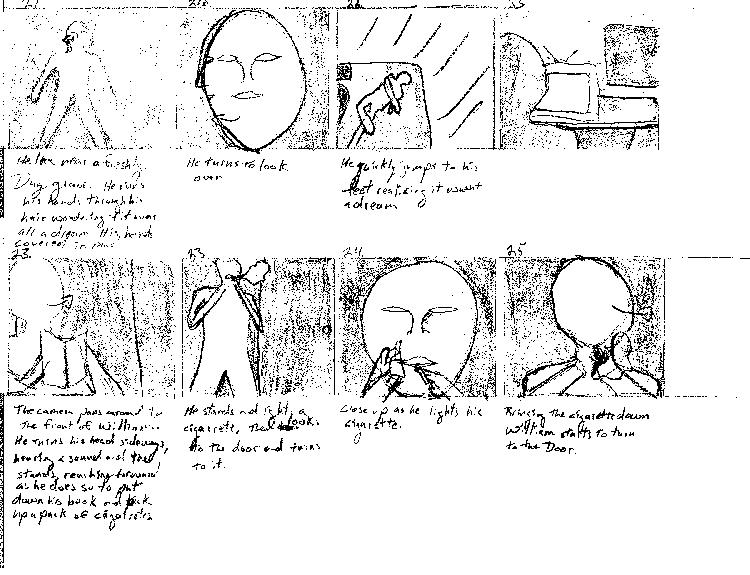 He turns to look
over
He quickly jumps to his
feet realizing it wasnt
a dream
Dug grave. He runs
his hands through his
hair wondering if it was
all a dream His hands
covered in
23.
23
24
25
The camera pans around to
the front of William.
He turns his head sideways,
hearing a sound and then
stands, reaching forward
as he does so to put
down his book and pick
up a pack of cigarettes
He stands and lights a
cigarette, then looks
to the door and turns
to it.
Close up as he lights his
cigarette.
Bringing the cigarette down
William starts to turn
to the Door.